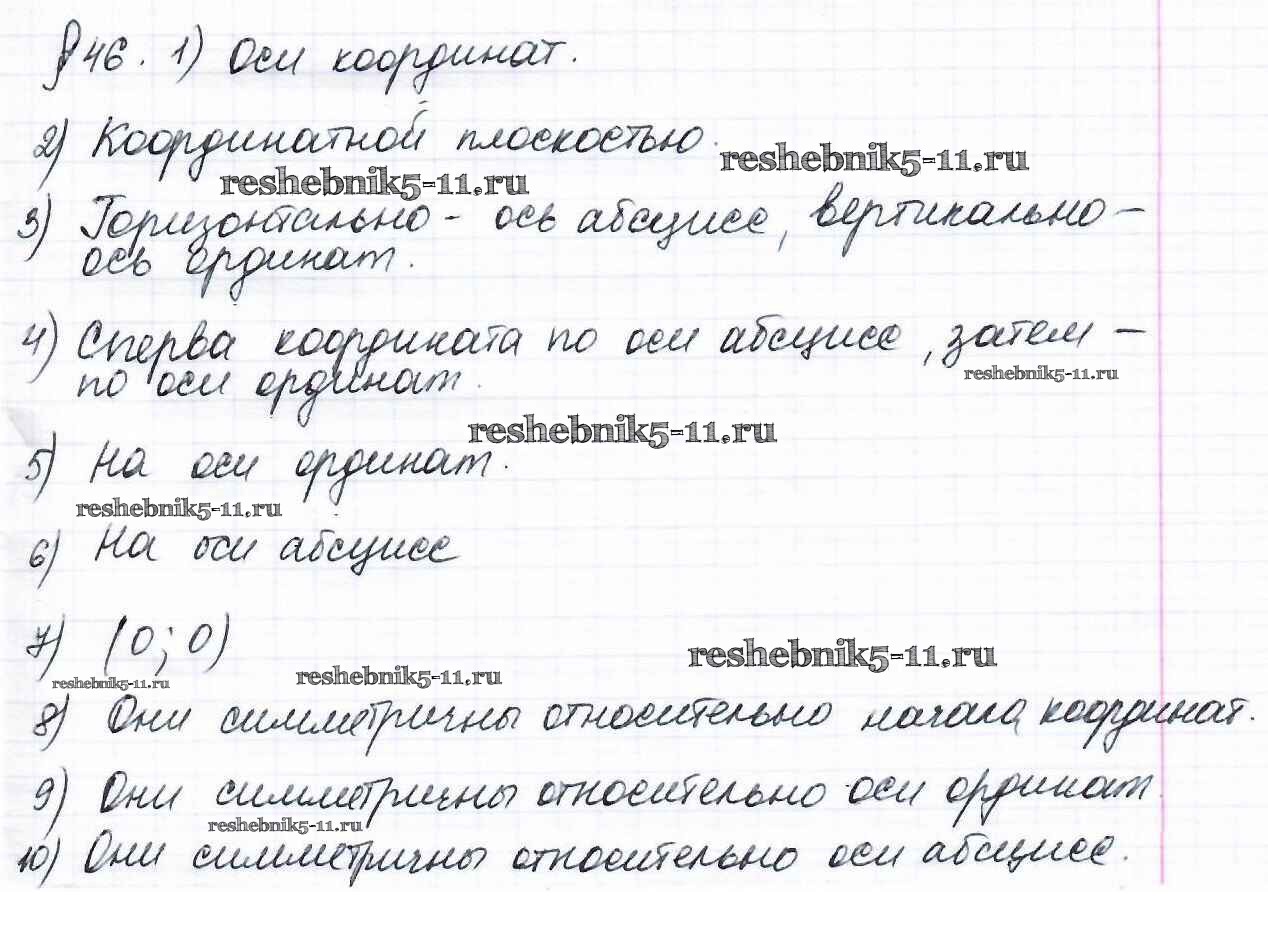 § 46. 1) Оси координат.
2) Координатной плоскостью.
reshebnik5-11.ru
reshebnik5-11.ru
3) Горизонтально - ось абсцисс, вертикально -
ось ординат.
4) Сперва координата по оси абсцисс, затем -
по оси ординат.
reshebnik5-11.ru
reshebnik5-11.ru
5) На оси ординат.
reshebnik5-11.ru
6) На оси абсцисс
7) (0; 0)
reshebnik5-11.ru
reshebnik5-11.ru
reshebnik5-11.ru
8) Они симметричны относительно начала координат.
9) Они симметричны относительно оси ординат.
reshebnik5-11.ru
10) Они симметричны относительно оси абсцисс.